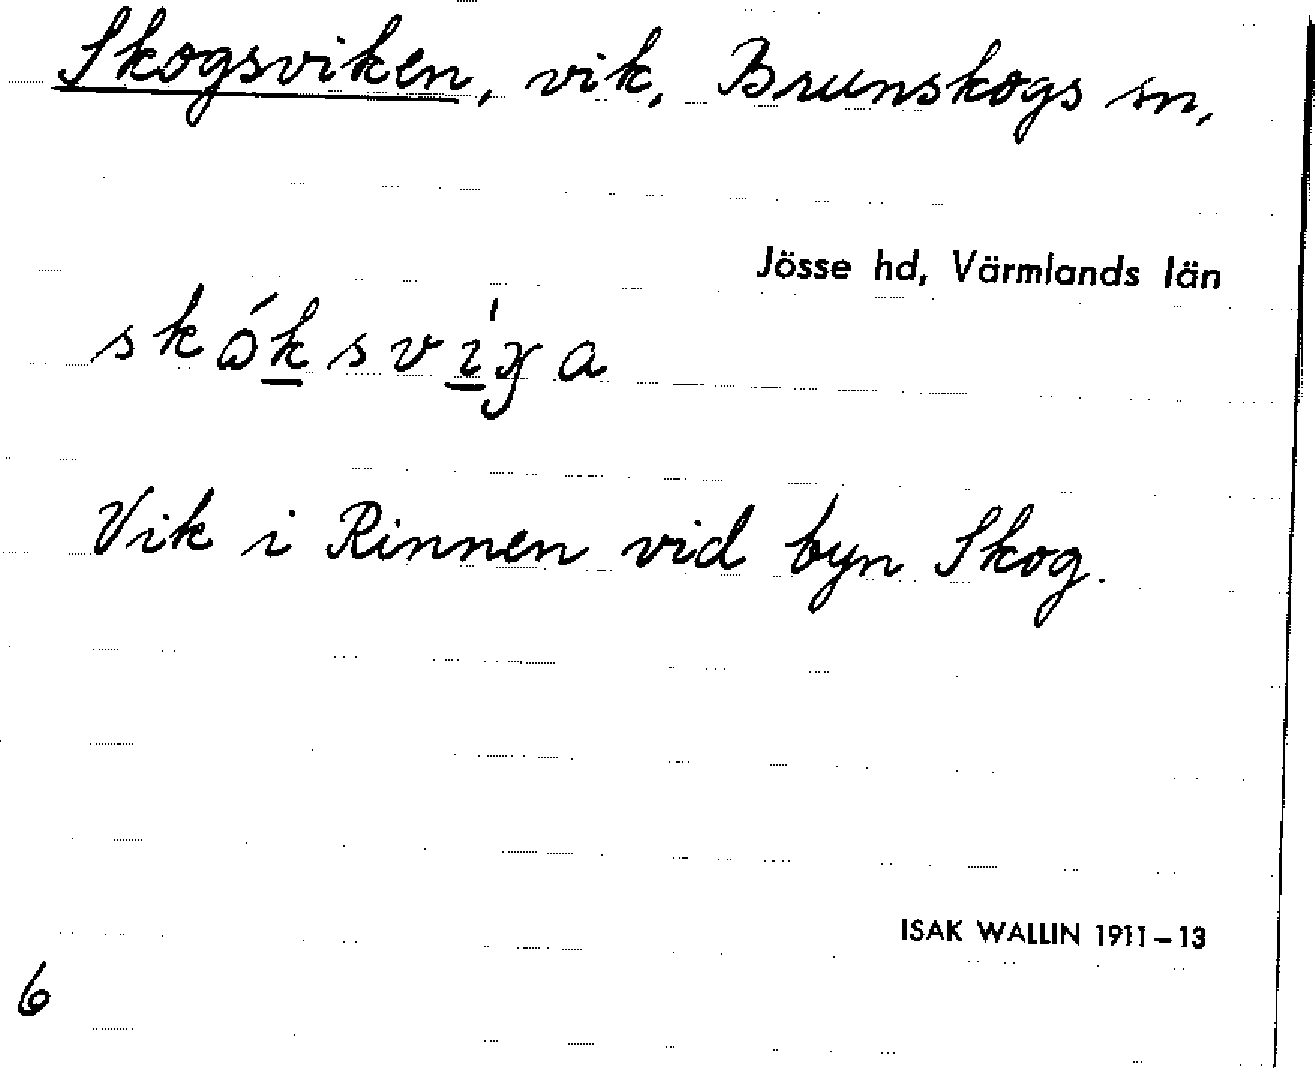 Skogsviken, vik, Brunskogs sn,
Jösse hd, Värmlands län
skóksvíɣa
Vik i Rinnen vid byn Skog.
ISAK WALLIN 1911–13
6